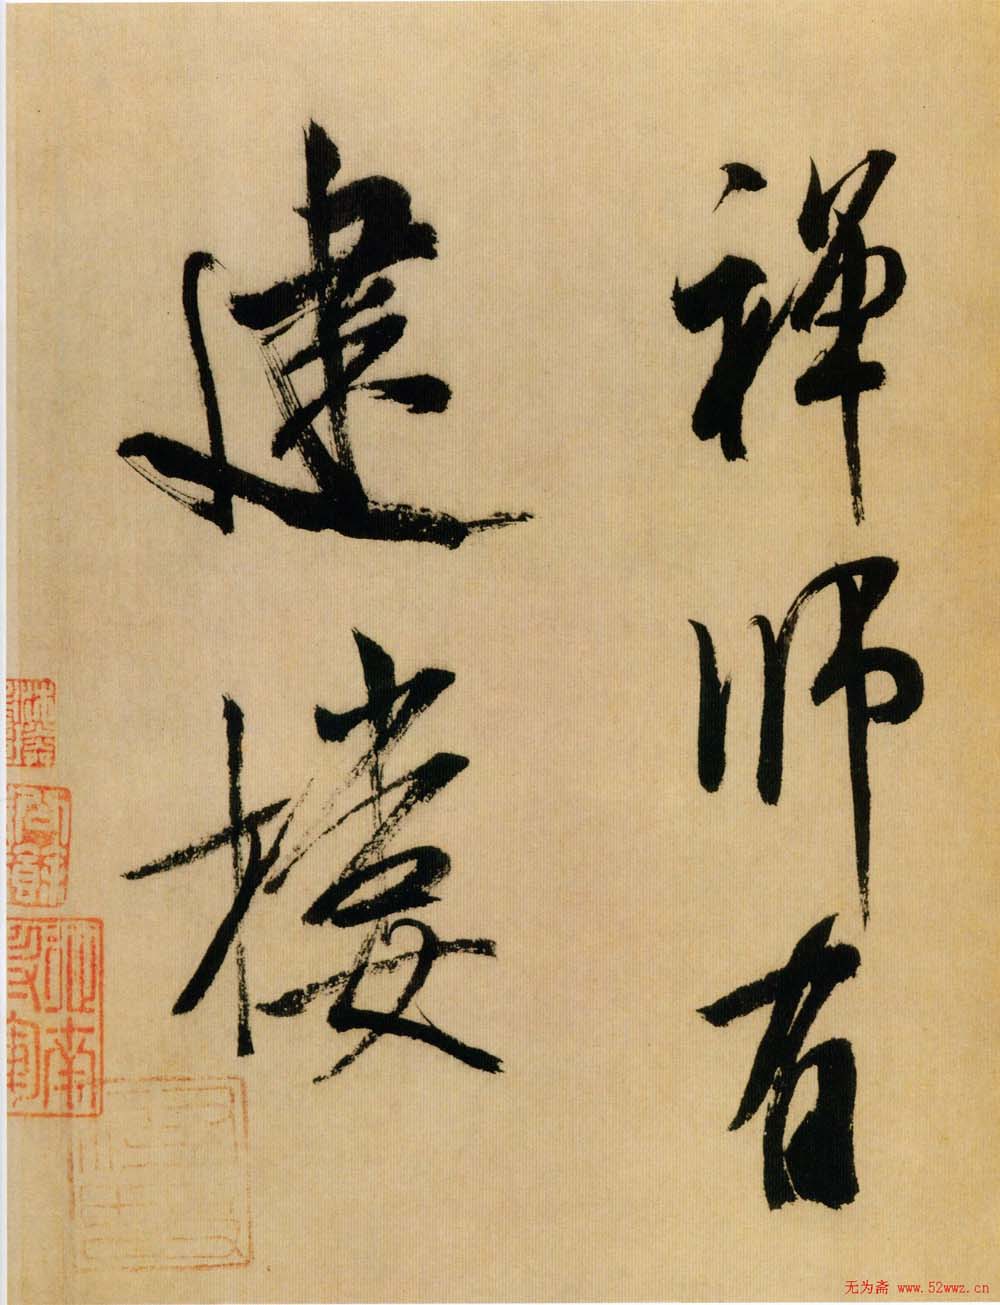 禪師有
建樓
无为斋 www.52wwz.cn